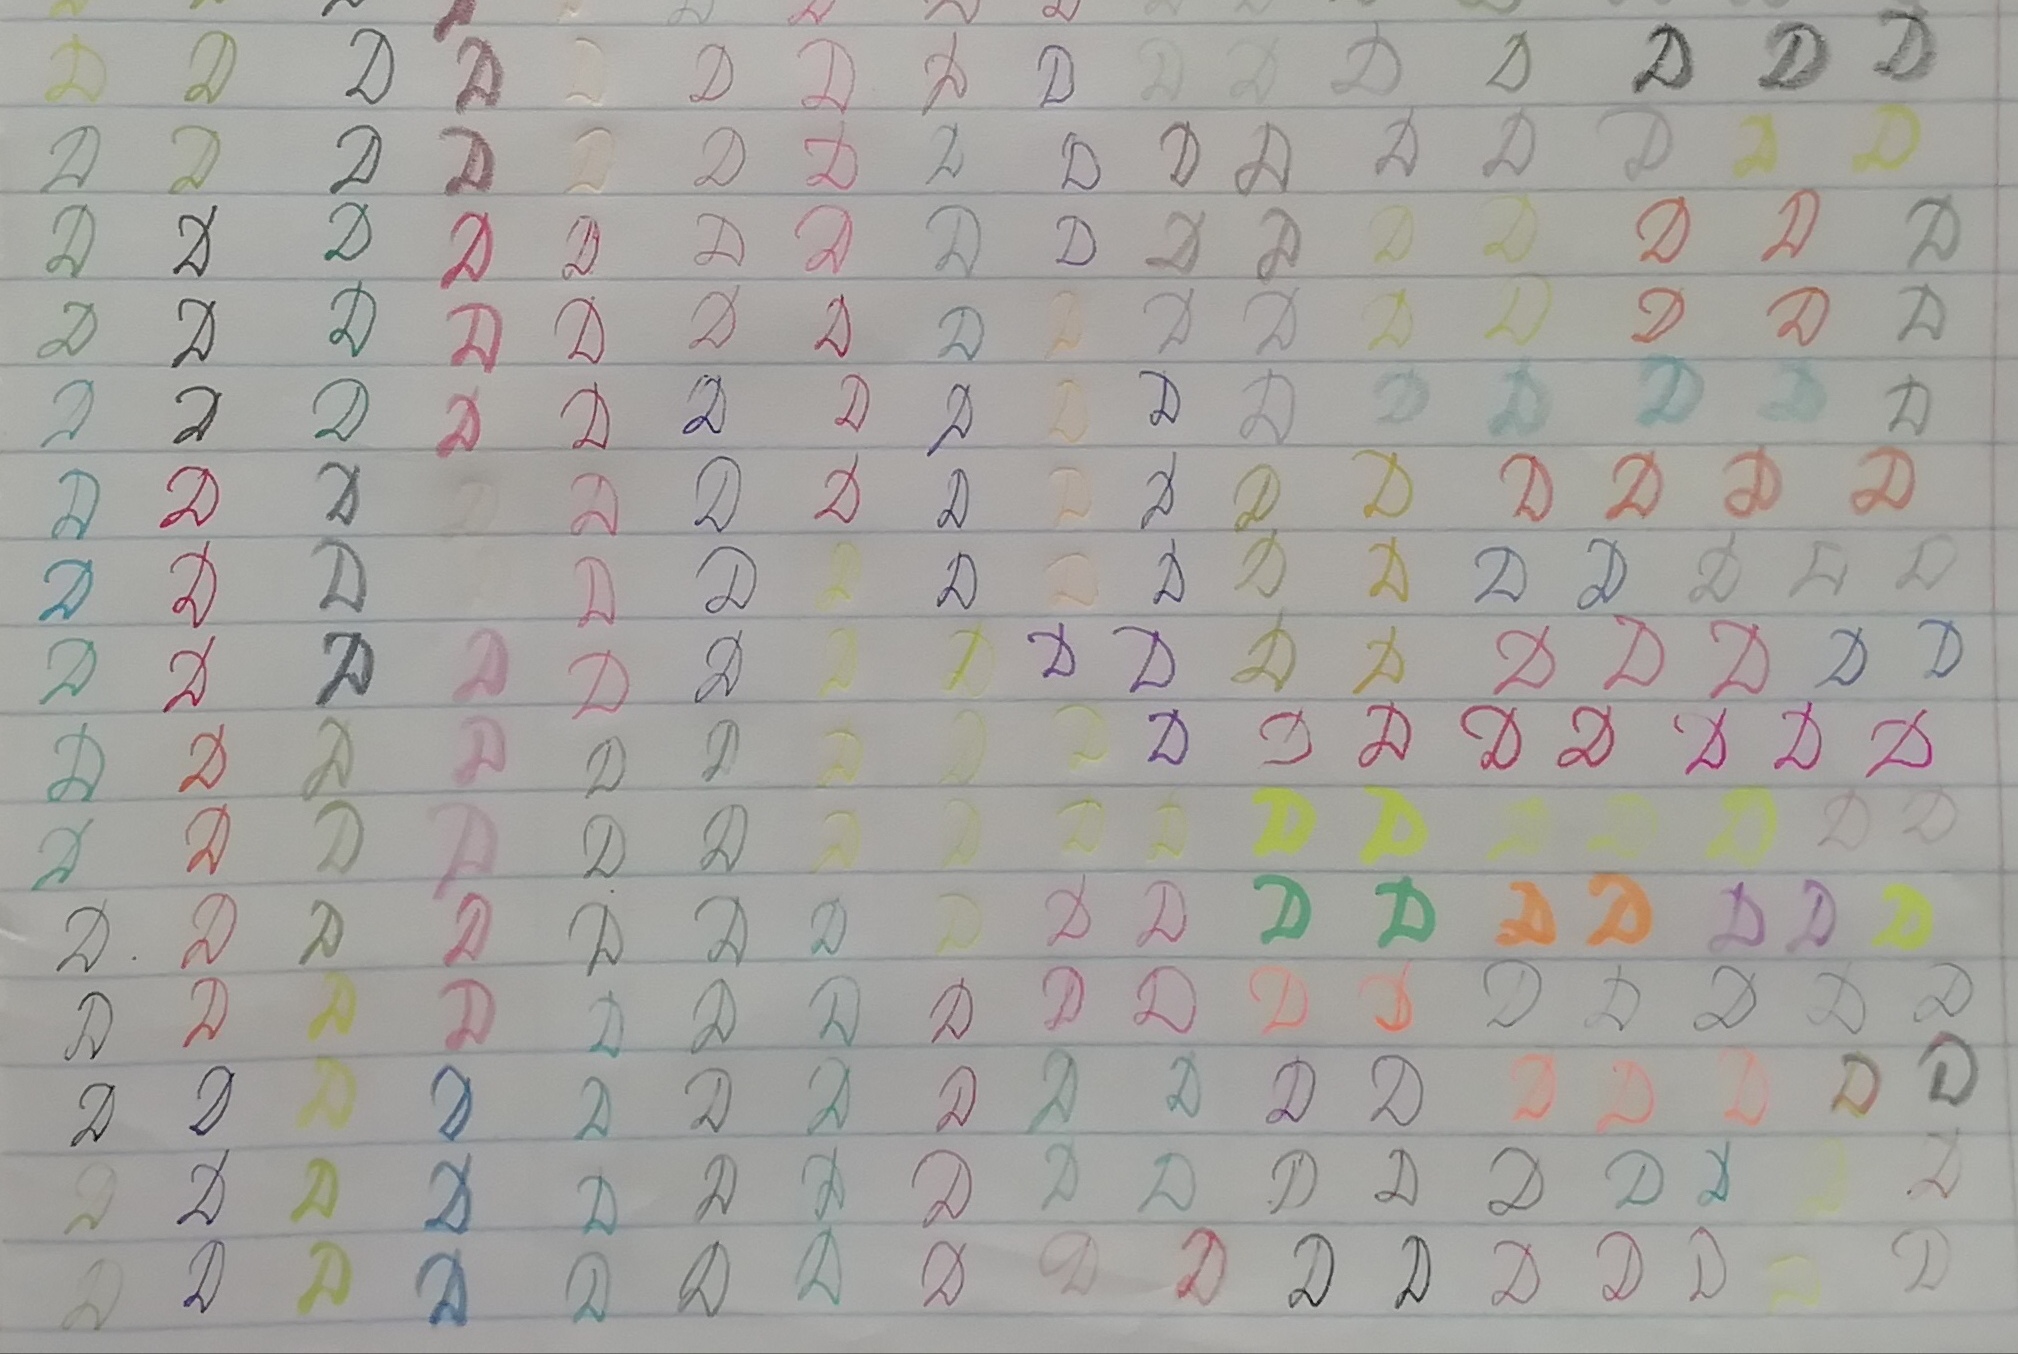 D D D D D D D D D D D D D D D D
D D D D D D D D D D D D D D D D
D D D D D D D D D D D D D D D D
D D D D D D D D D D D D D D D D
D D D D D D D D D D D D D D D D
D D D D D D D D D D D D D D D D
D D D D D D D D D D D D D D D D
D D D D D D D D D D D D D D D D D
D D D D D D D D D D D D D D D D D
D D D D D D D D D D D D D D D D D
D D D D D D D D D D D D D D D D D
D D D D D D D D D D D D D D D D D
D D D D D D D D D D D D D D D D D
D D D D D D D D D D D D D D D D D
D D D D D D D D D D D D D D D D D